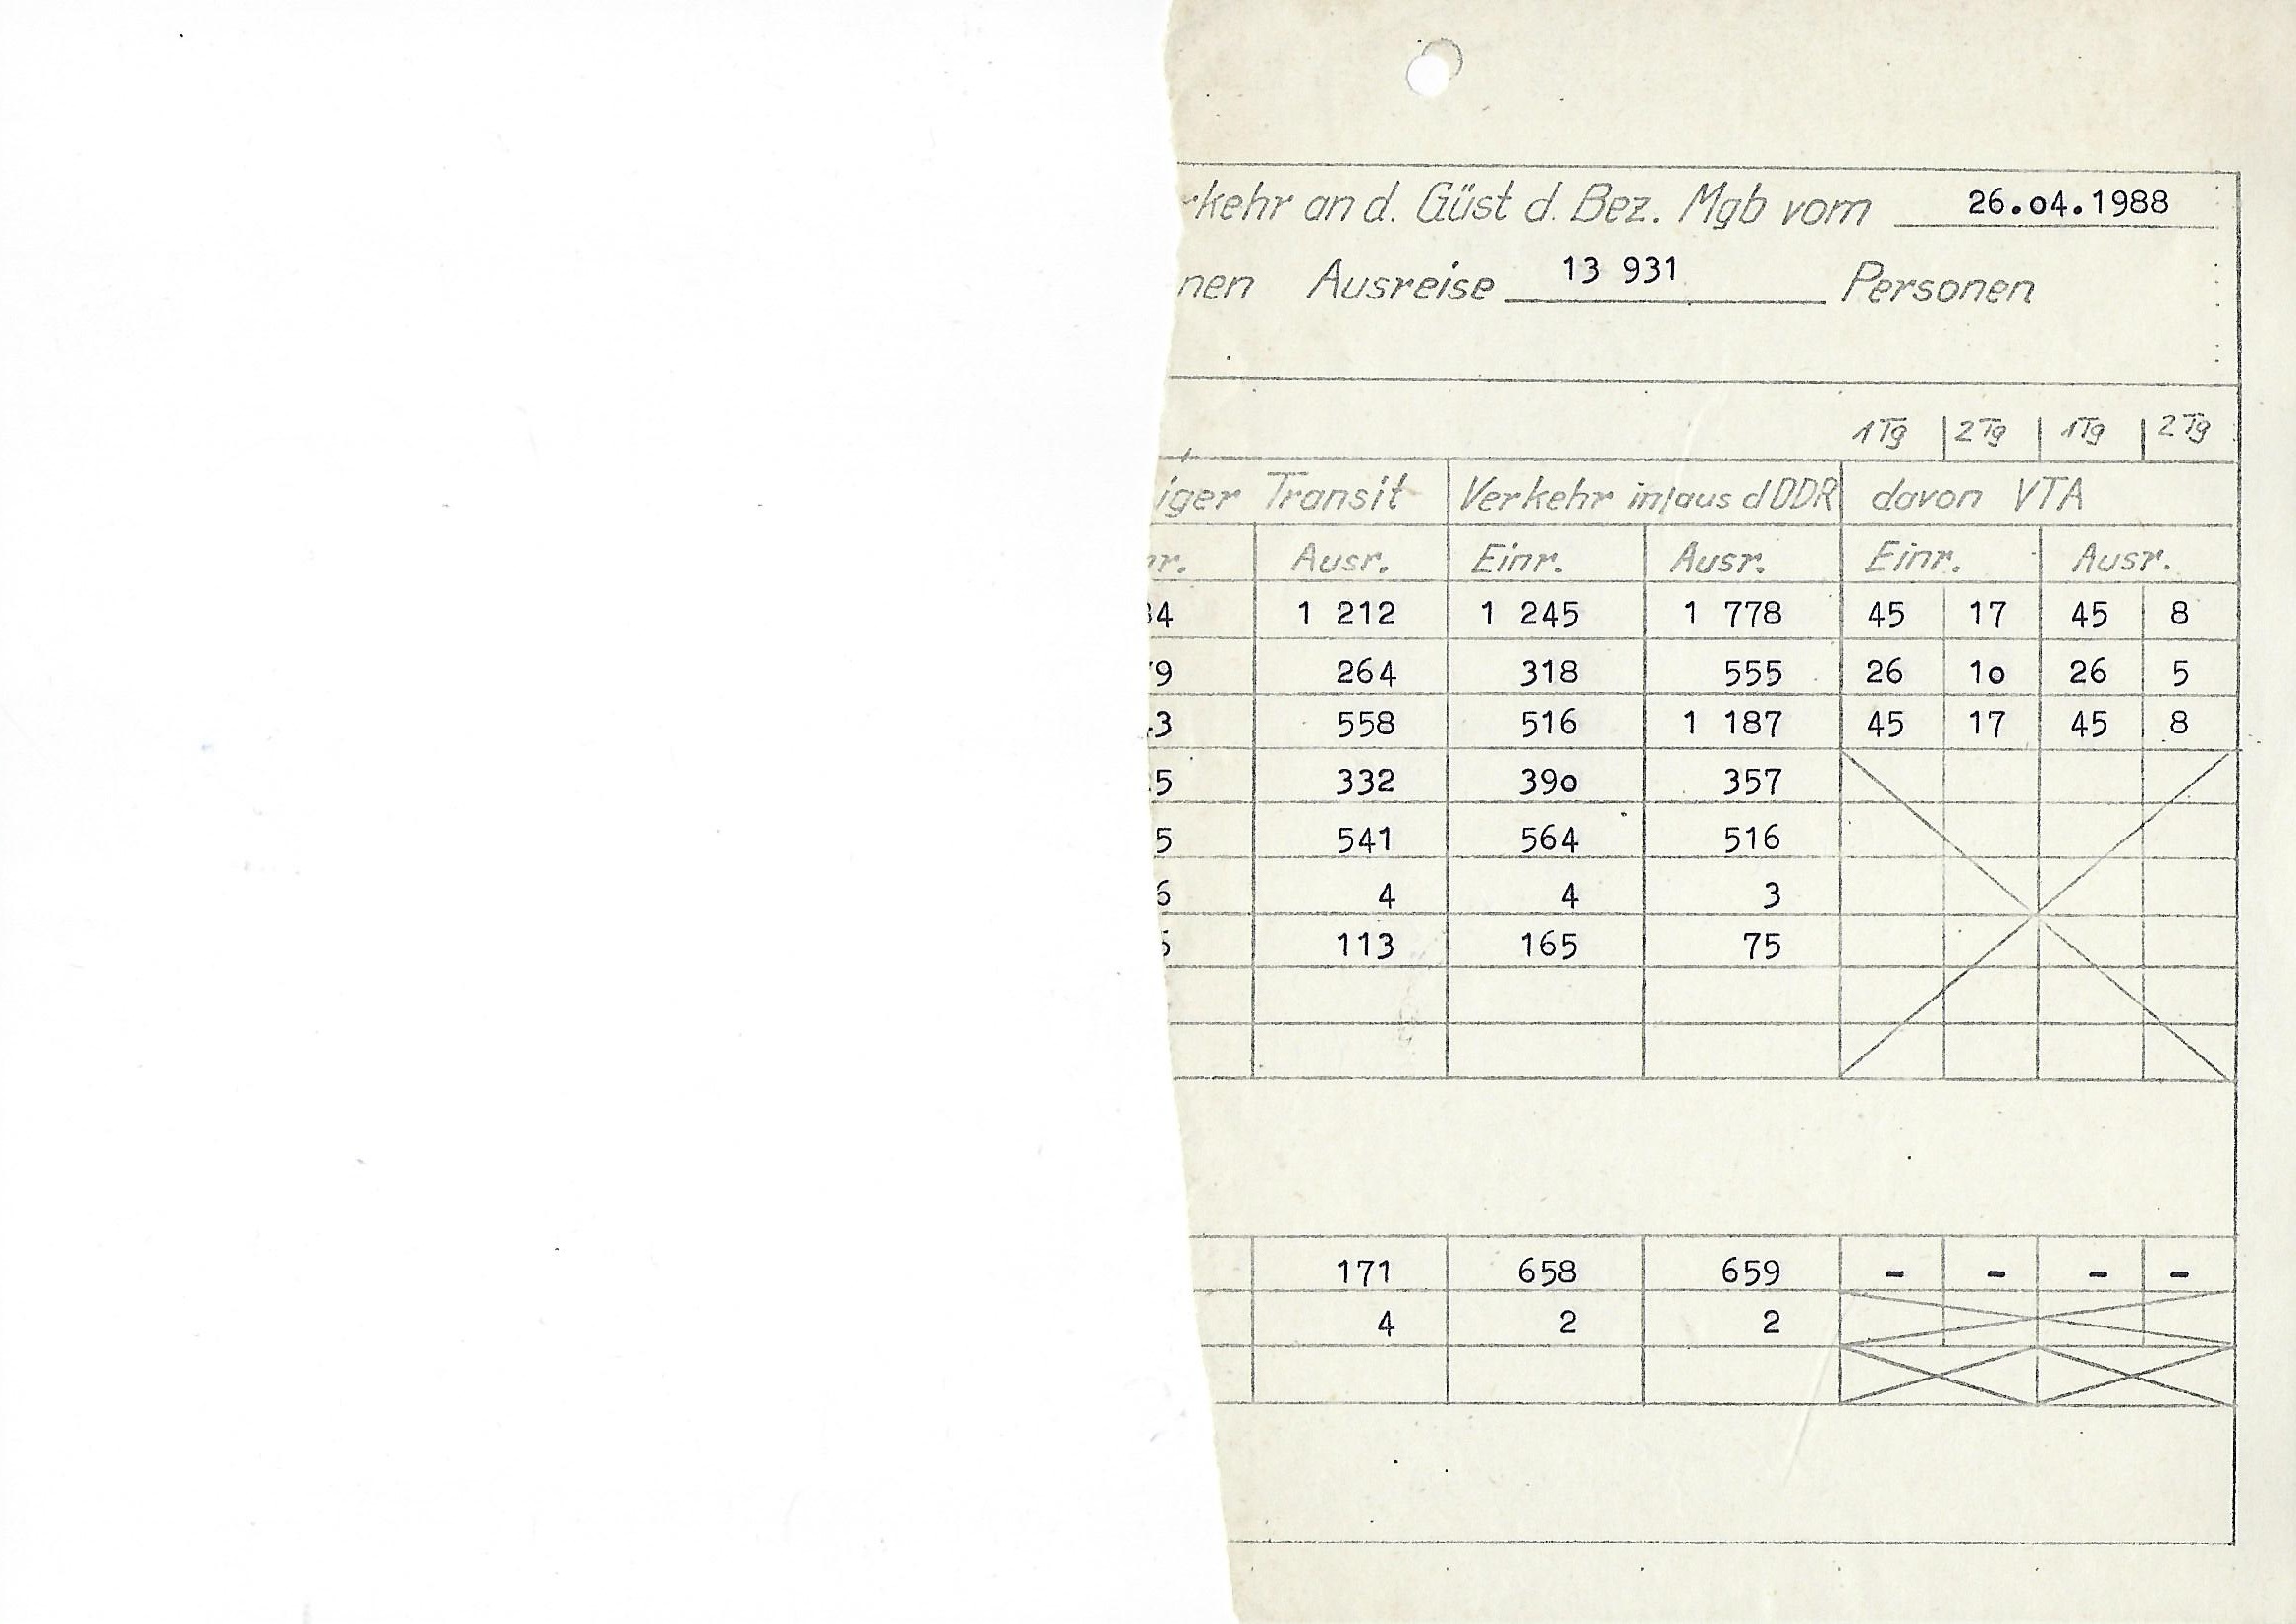 kehr an d. Güst d. Bez. Mgb vom 26.o4.1988
nen Ausreise 13 931 Personen
1Tg 2Tg 1Tg 2Tg
iger Transit Verkehr in/aus d DDR davon VTA
r. Ausr. Einr. Ausr. Einr. Ausr.
4 1 212 1 245 1 778 45 17 45 8
9 264 318 555 26 1o 26 5
3 558 516 1 187 45 17 45 8
5 332 39o 357
5 541 564 516
6 4 4 3
5 113 165 75
171 658 659 - - - -
4 2 2